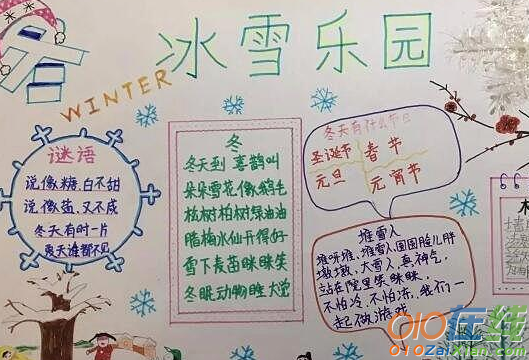 冬
冰雪乐园
WINTER
谜语
说像糖,白不甜
说像盐,又不咸
冬天有时一片
夏天谁都不见
冬
冬天到 喜鹊叫
朵朵雪花像鹅毛
松树柏树绿油油
腊梅水仙开得好
雪下麦苗眯眯笑
冬眠动物睡大觉
冬天有什么节日
圣诞节 春节
元旦 元宵节
堆雪人
堆呀堆,堆雪人圆圆脸儿胖
墩墩,大雪人真神气,
站在院里笑眯眯,
不怕冷,不怕冻,我们一
起做游戏
010在线
010zaixian.com